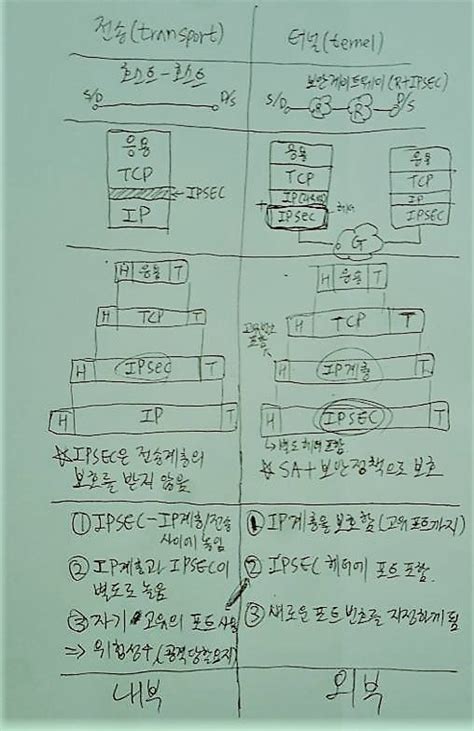 전송(transport)
터널(temel)
호스트-호스트
S/D
D/S
보안게이트웨이(R+IPSEC)
S/D
R
R
D/S
응용
TCP
←IPSEC
IP
응용
TCP
IP
+
IPSEC
응용
TCP
IP
IPSEC
G
H 응용 T
H TCP T
H IPSEC T
H IP T
H 응용 T
H TCP T
포함
H IP계층 T
H IPSEC T
↳별도 헤더 포함
☆IPSEC은 전송계층의
보호를 받지 않을
☆SA+보안정책으로 보호
① IPSEC-IP계층/전송
사이에 놓임
② IP계층과 IPSEC이
별도로 놓음
③ 자기 고유의 포트 사용
⇒ 위험성수 (공격당할요지)
① IP계층을 보호함(고유포트까지)
② IPSEC 헤더에 포트 포함.
③ 새로운 포트번호를 지정하게 됨
내부
외부